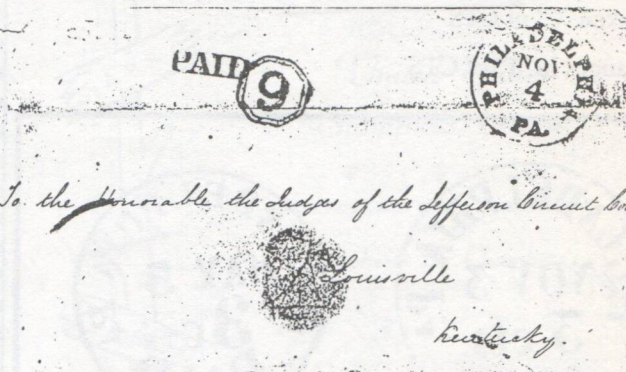 PAID 9
PHILADELPHIA
NOV
4
PA.
To the Honorable the Judges of the Jefferson Circuit Co
Louisville
Kentucky.